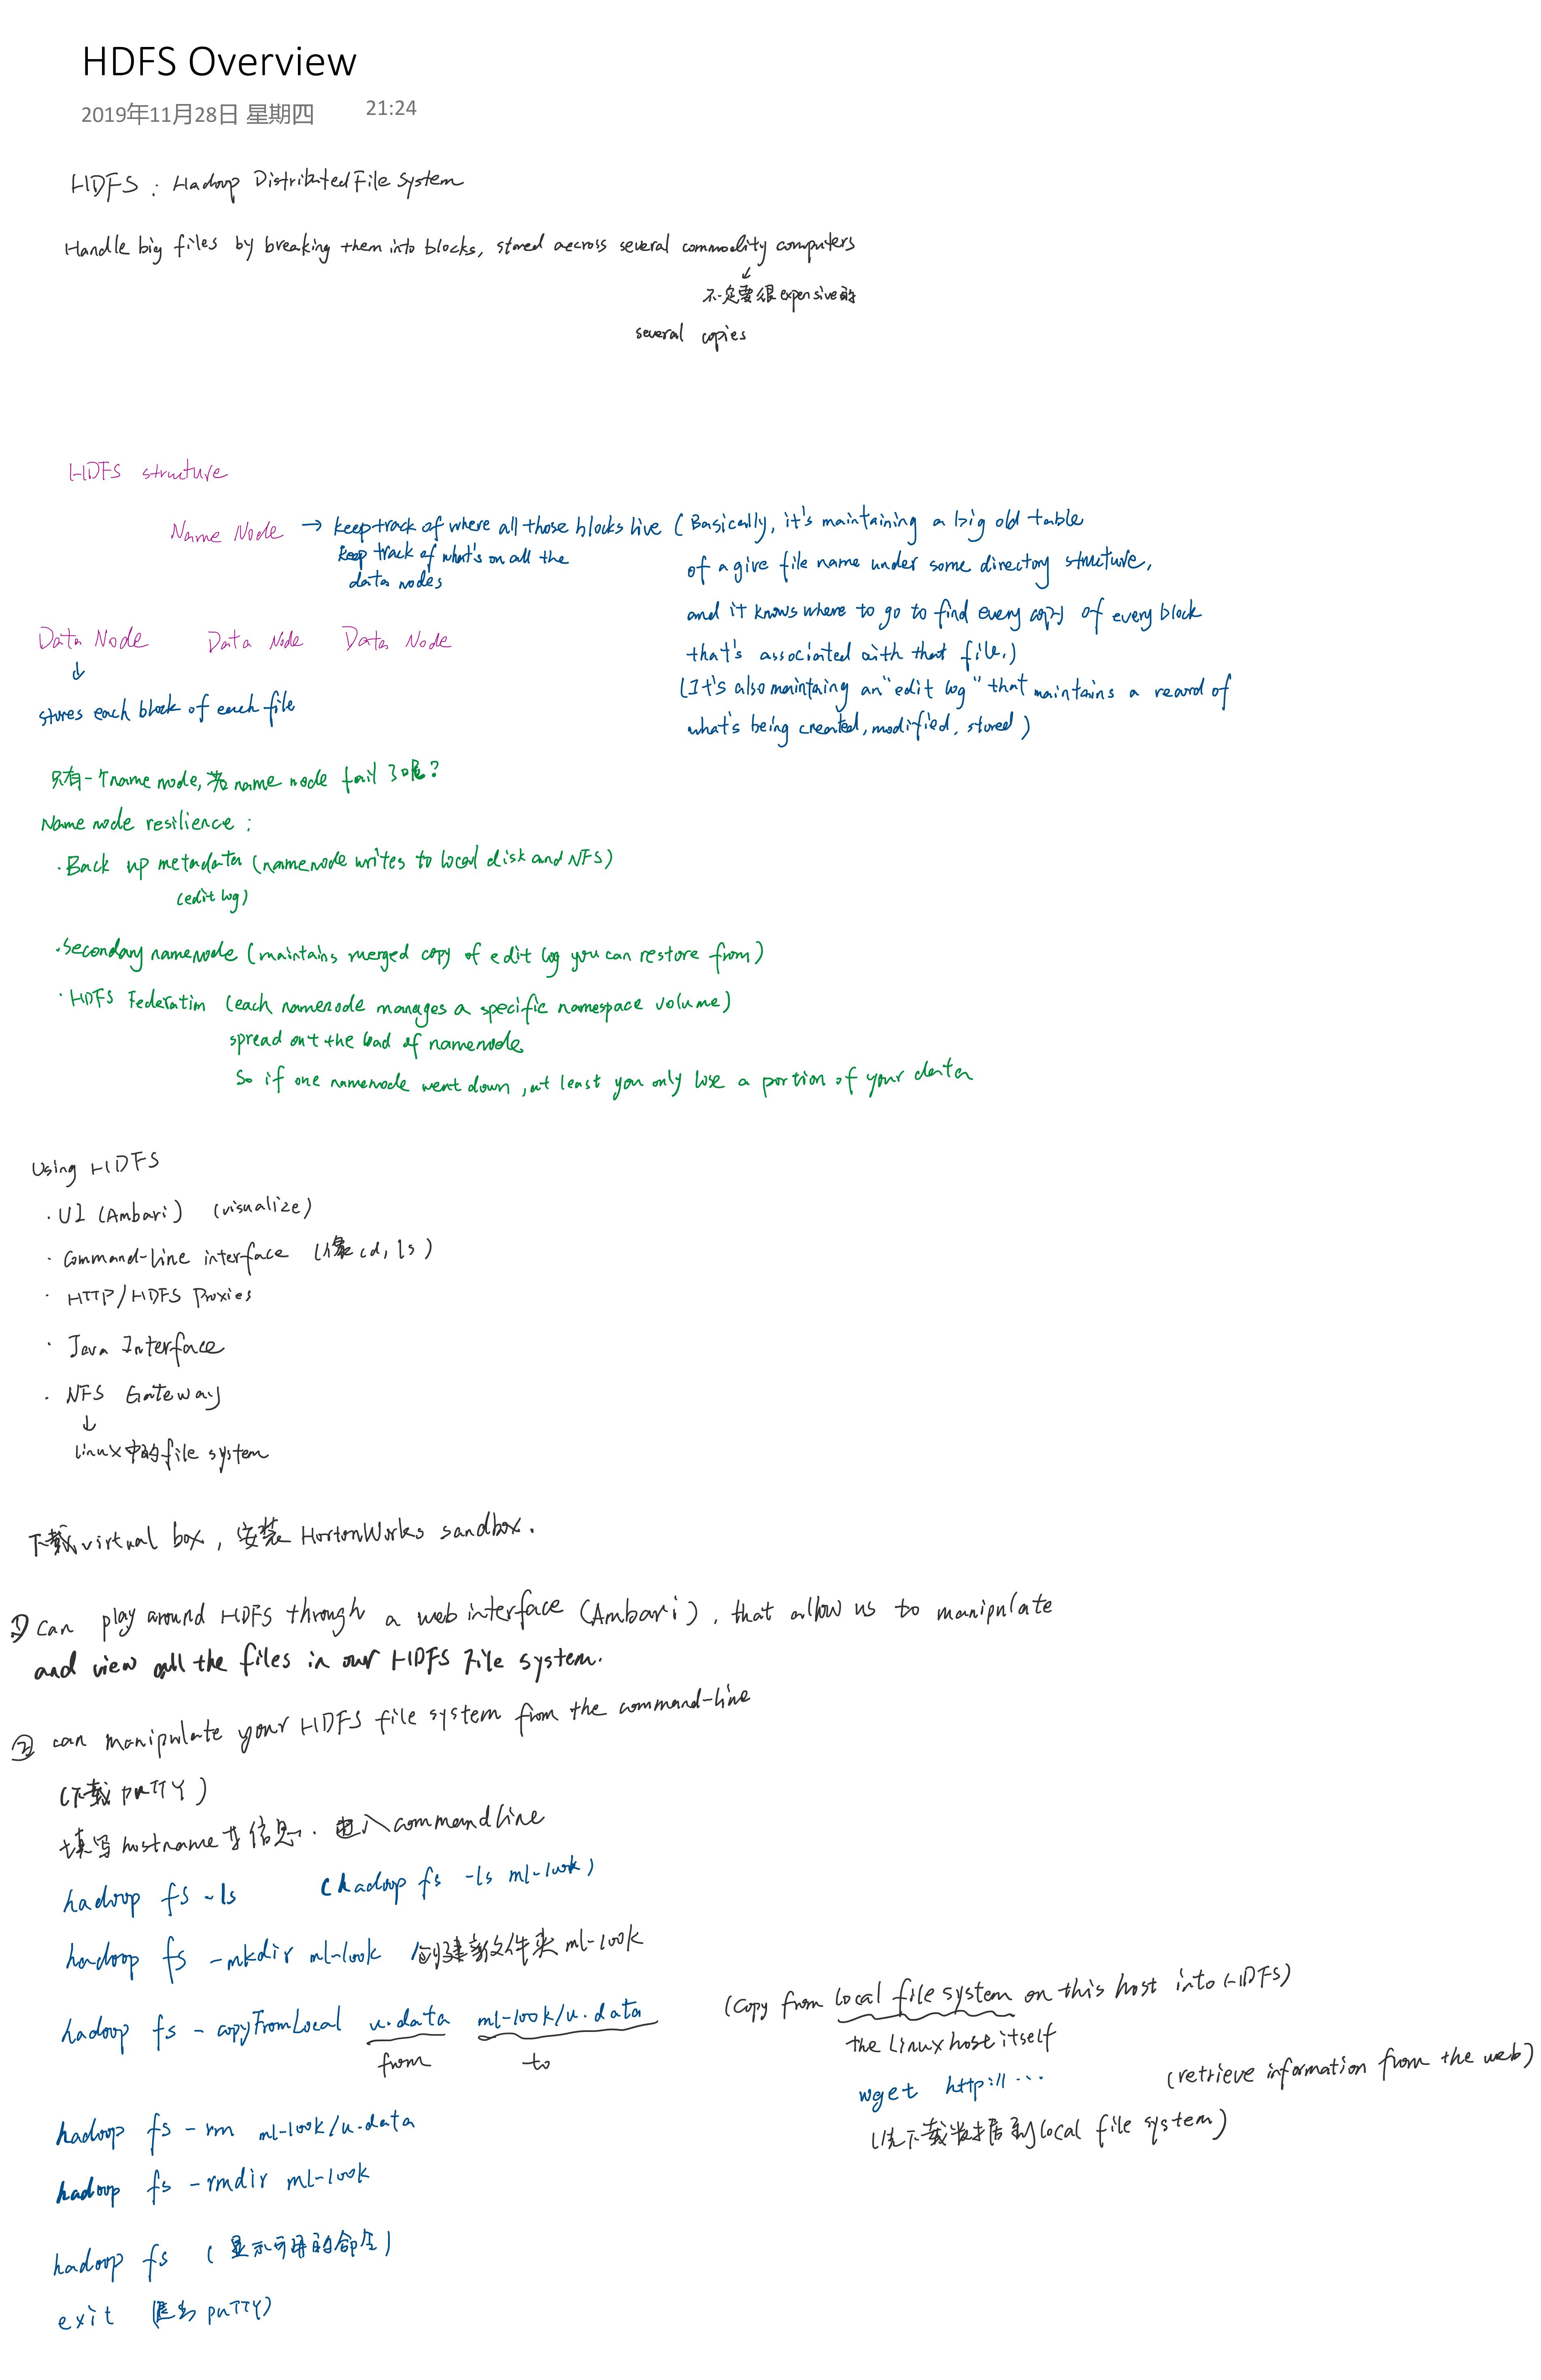 HDFS Overview
2019年11月28日 星期四 21:24
HDFS : Hadoop Distributed File System
Handle big files by breaking them into blocks, stored aecross several commodity computers
↙
不一定要很expensive的
several copies
HDFS structure
Name Node → keep track of where all those blocks live (Basically, it's maintaining a big old table
keep track of what's on all the
data nodes
of a give file name under some directory structure,
and it knows where to go to find every copy of every block
that's associated with that file.)
(It's also maintaing an "edit log" that maintains a record of
what's being created, modified, stored)
Data Node Data Node Data Node
↓
stores each block of each file
只有一个name node, 若name node fail了呢?
Name node resilience :
· Back up metadata (namenode writes to local disk and NFS)
(edit log)
· Secondary namenode (maintains merged copy of edit log you can restore from)
· HDFS Federation (each namenode manages a specific namespace volume)
spread out the load of namenode
So if one namenode went down, at least you only lose a portion of your data
Using HDFS
· UI (Ambari) (visualize)
· Command-Line interface (像cd, ls)
· HTTP/HDFS Proxies
· Java Interface
· NFS Gateway
↓
linux中的file system
下载virtual box, 安装HortonWorks sandbox.
① Can play around HDFS through a web interface (Ambari), that allow us to manipulate
and view all the files in our HDFS File system.
② can manipulate your HDFS file system from the command-line
(下载 puTTY)
填写hostname等信息. 进入command line
hadoop fs -ls (hadoop fs -ls ml-100k)
hadoop fs -mkdir ml-100k 创建新文件夹ml-100k
hadoop fs -copyFromLocal u.data ml-100k/u.data
from to
(Copy from local file system on this host into HDFS)
the Linux hose itself
wget http://... (retrieve information from the web)
(先下载数据到local file system)
hadoop fs -rm ml-100k/u.data
hadoop fs -rmdir ml-100k
hadoop fs (显示可用的命令)
exit (退出 puTTY)